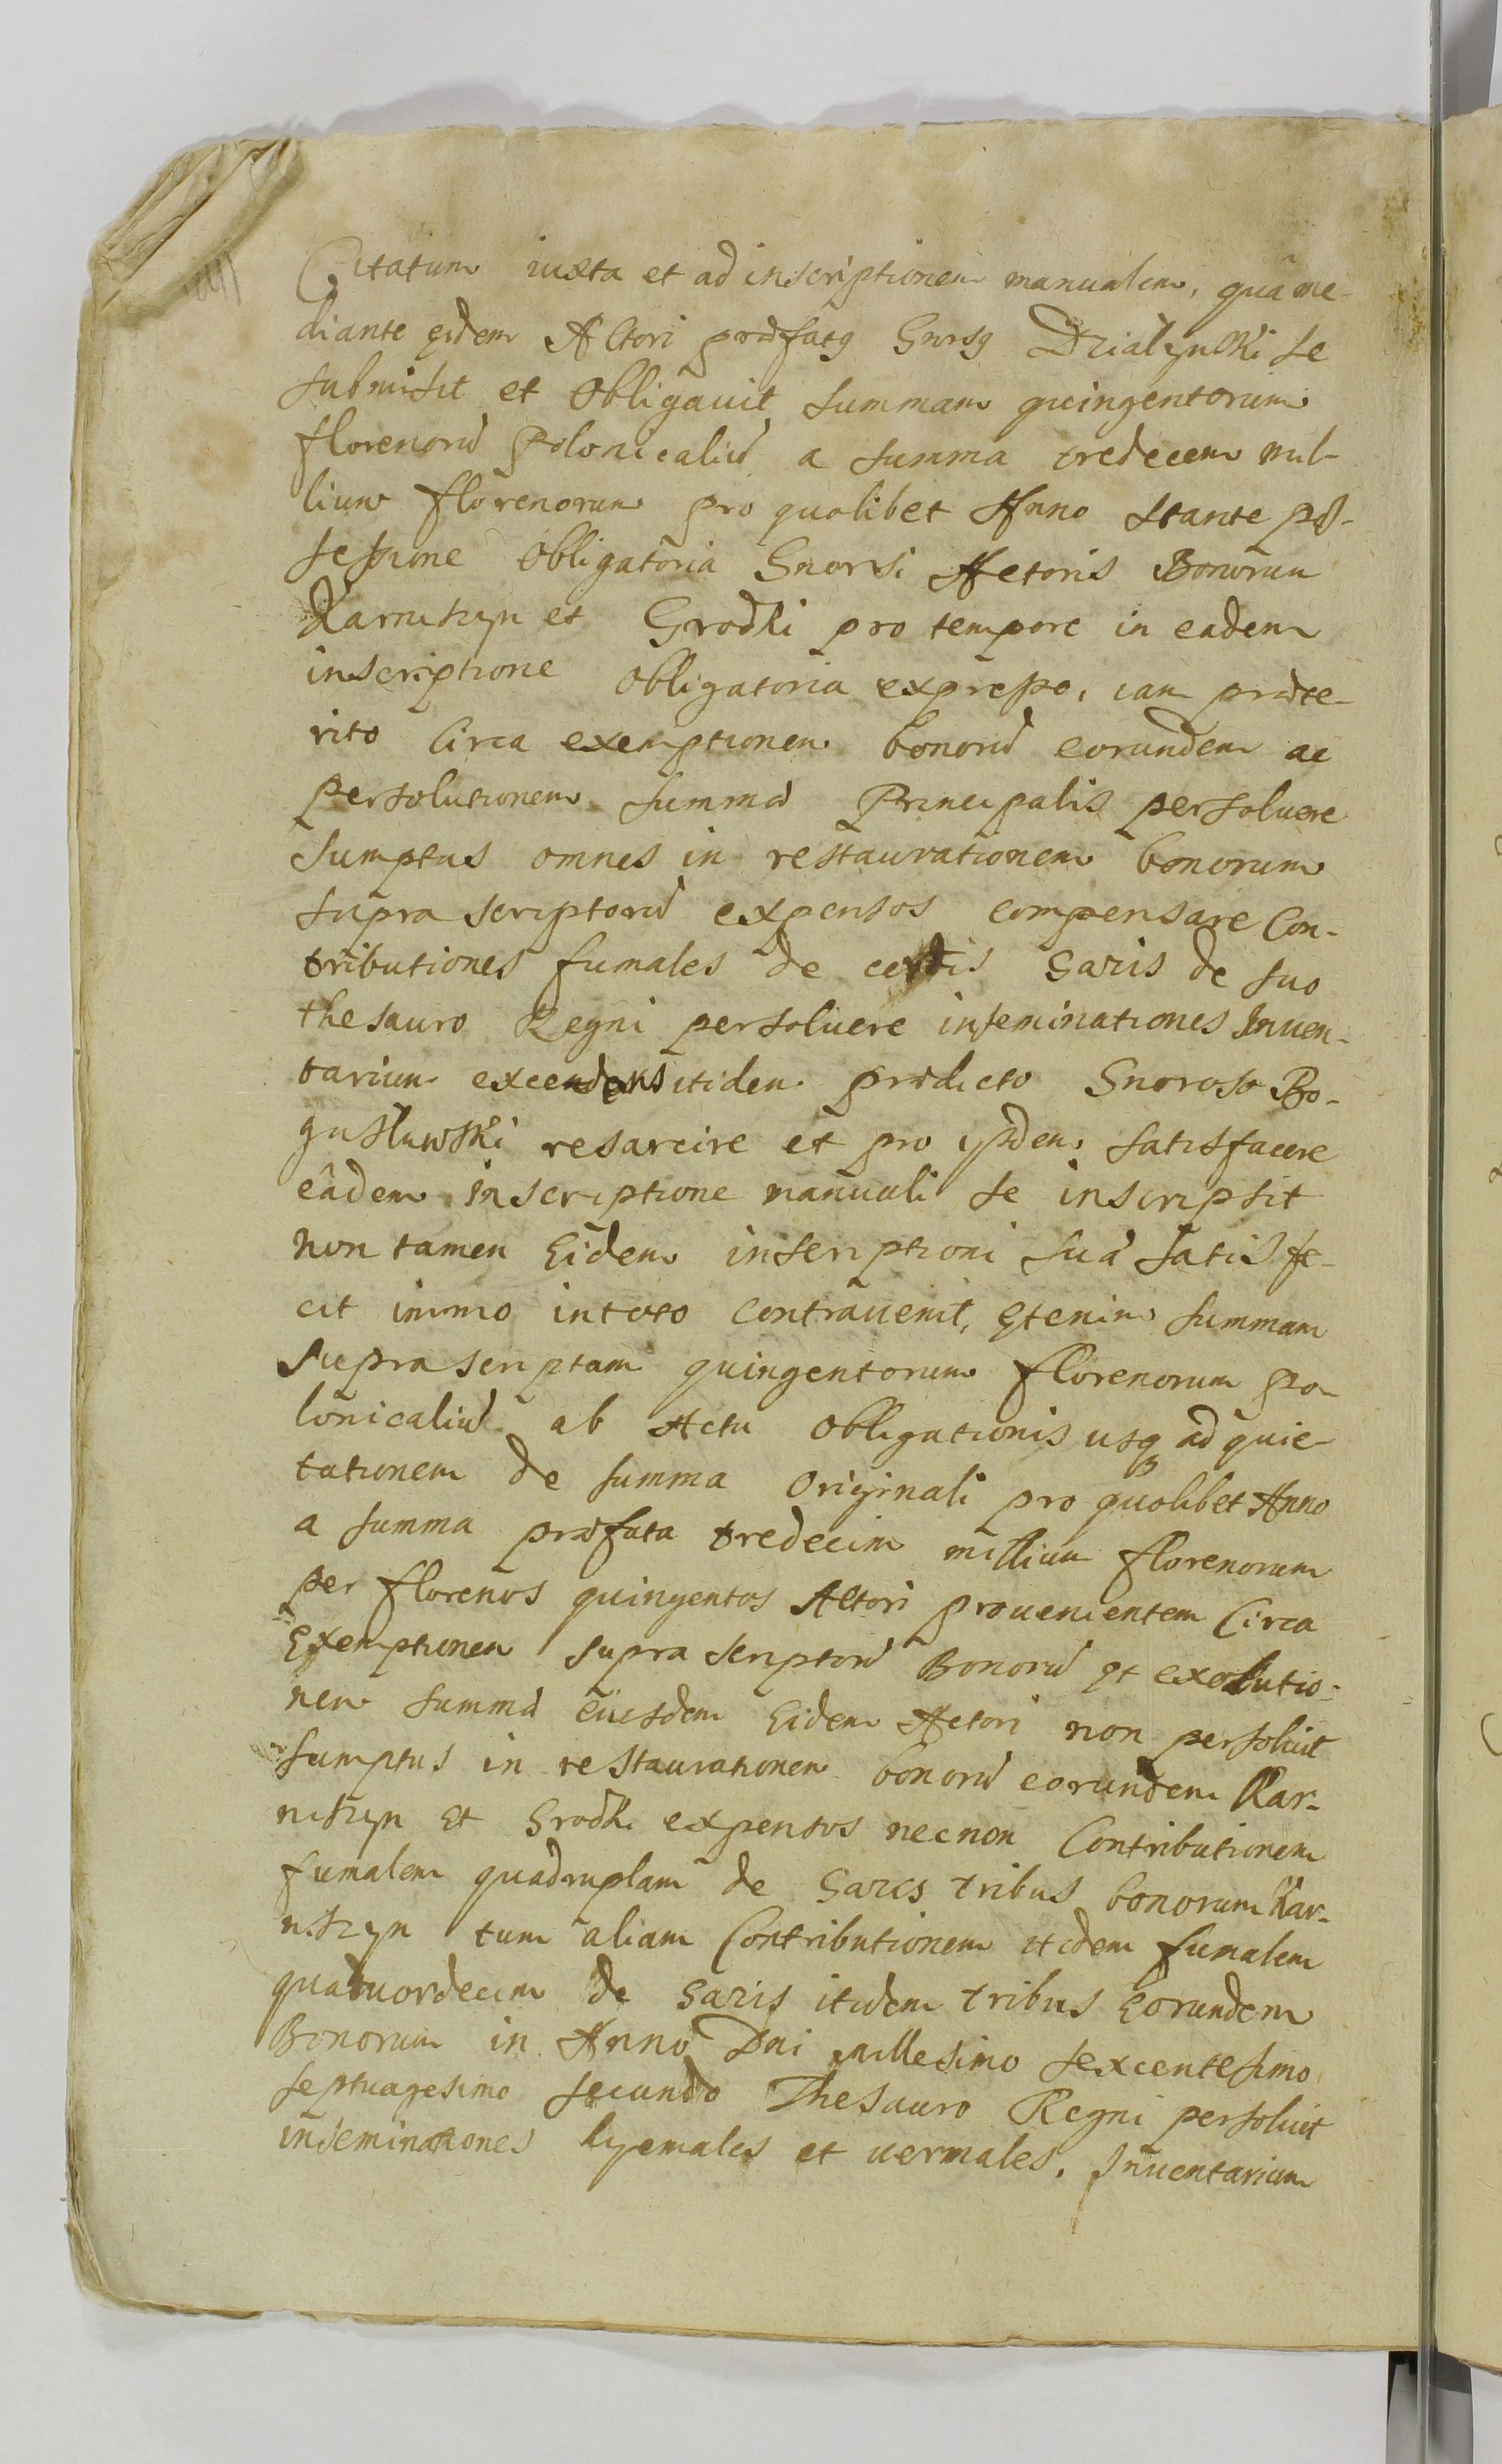 Citatum iuxta et ad inscriptionem manualem, quâ me-
diante eidem Actori præfatq Gnrsq Dzialynski se
submisit et Obligauit summam quingentorum
florenorũ Polonicaliũ a summa tredecem mil-
lium florenorum pro quolibet Anno stante pos-
sessione obligatoria Gnorsi Actoris Bonorum
Karniszyn et Grodki pro tempore in eadem
inscriptione Obligatoria expresso, iam præte-
rito Circa exemptionem bonorũ eorundem ac
persolutionem summæ Principalis persoluere
sumptus omnes in restaurationem bonorum
supra scriptorũ expensos compensare Con-
tributiones fumales de certis Garis de suo
thesauro Regni persoluere inseminationes Inuen-
tarium excendens itidem prædicto Gnoroso Bo-
guslawski resarcire et pro ijsdem satisfacere
eâdem inscriptione manuali se inscripsit
non tamen Eidem inscriptioni suæ satis fe-
cit immo intoto contrauenit, etenim summam
supra scriptam quingentorum florenorum po-
lonicaliũ ab Actu Obligationis usq ad quie-
tationem de summa Originali pro quolibet Anno
a summa præfata tredecim millium florenorum
per florenos quingentos Actori prouenientem Circa
Exemptionem supra scriptorũ Bonorũ et exolutio-
nem summæ euisdem Eidem Actori non persoluit
sumptus in restaurationem bonorũ eorundem Kar-
niszyn Et Grodki expensos necnon Contributionem
fumalem quadruplam de Garis tribus bonorum Kar-
niszyn tum aliam Contributionem itidem fumalem
quatuordecim de Garis itidem tribus Eorundem
Bonorum in Anno Dni millesimo sexcentesimo
septuagesimo secundo Thesauro Regni persoluit
inseminationes hyemales et uernales, Inuentarium